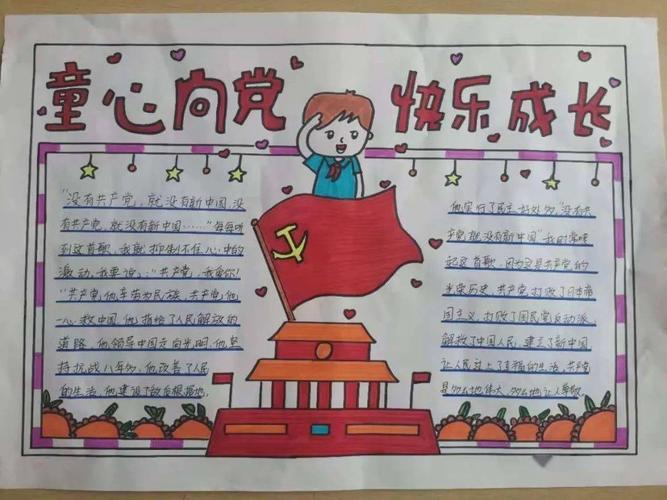 童心向党 快乐成长
"没有共产党，就没有新中国，没
有共产党，就没有新中国……"每每听
到这首歌，我就抑制不住心中的
激动，我要说："共产党，我爱你！
"共产党他辛劳为民族，共产党他
一心救中国，他指给了人民解放的
道路，他领导中国走向光明，他坚
持抗战八年多，他改善了人民
的生活，他建设了敌后根据地，
他实行了民主好处多，"没有共
产党就没有新中国"我时常唱
起这首歌，因为这是共产党的
光荣历史，共产党打败了日本帝
国主义，打败了国民党反动派
解放了中国人民，建立了新中国
让人民过上了幸福的生活，共产党
是多么地伟大，多么地让人尊敬。